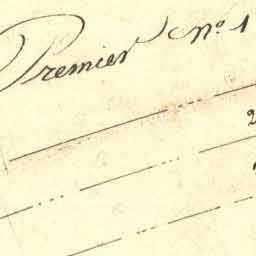 Premier Nº 1
2